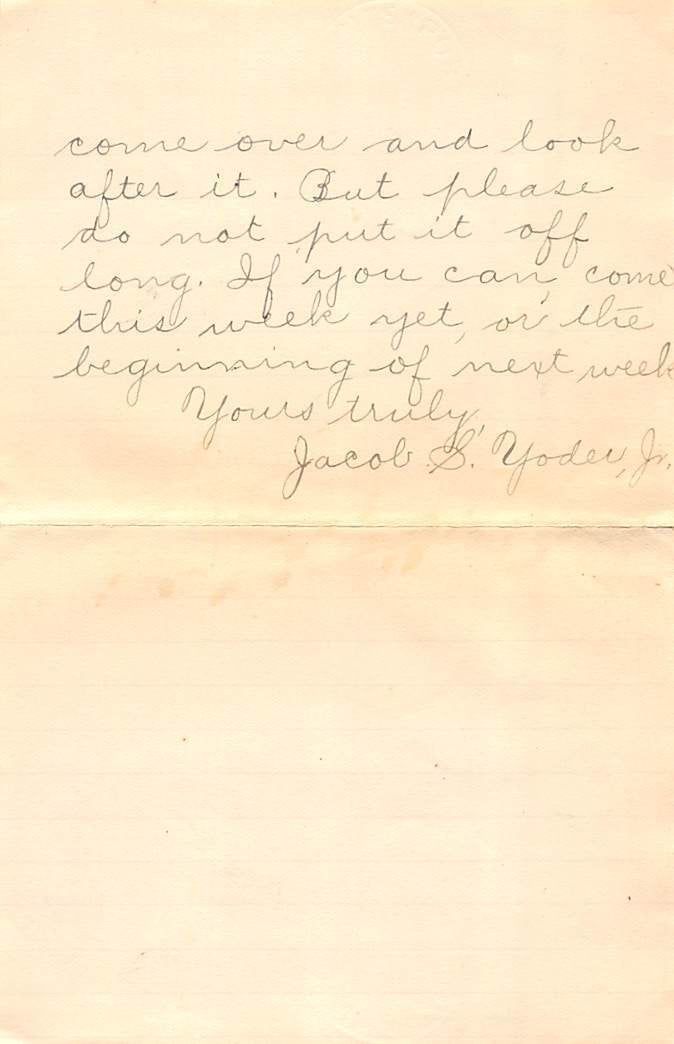 come over and look
after it. But please
do not put it off
long. If you can, come
this week yet, or the
beginning of next week
Yours truly,
Jacob S. Yoder, Jr.